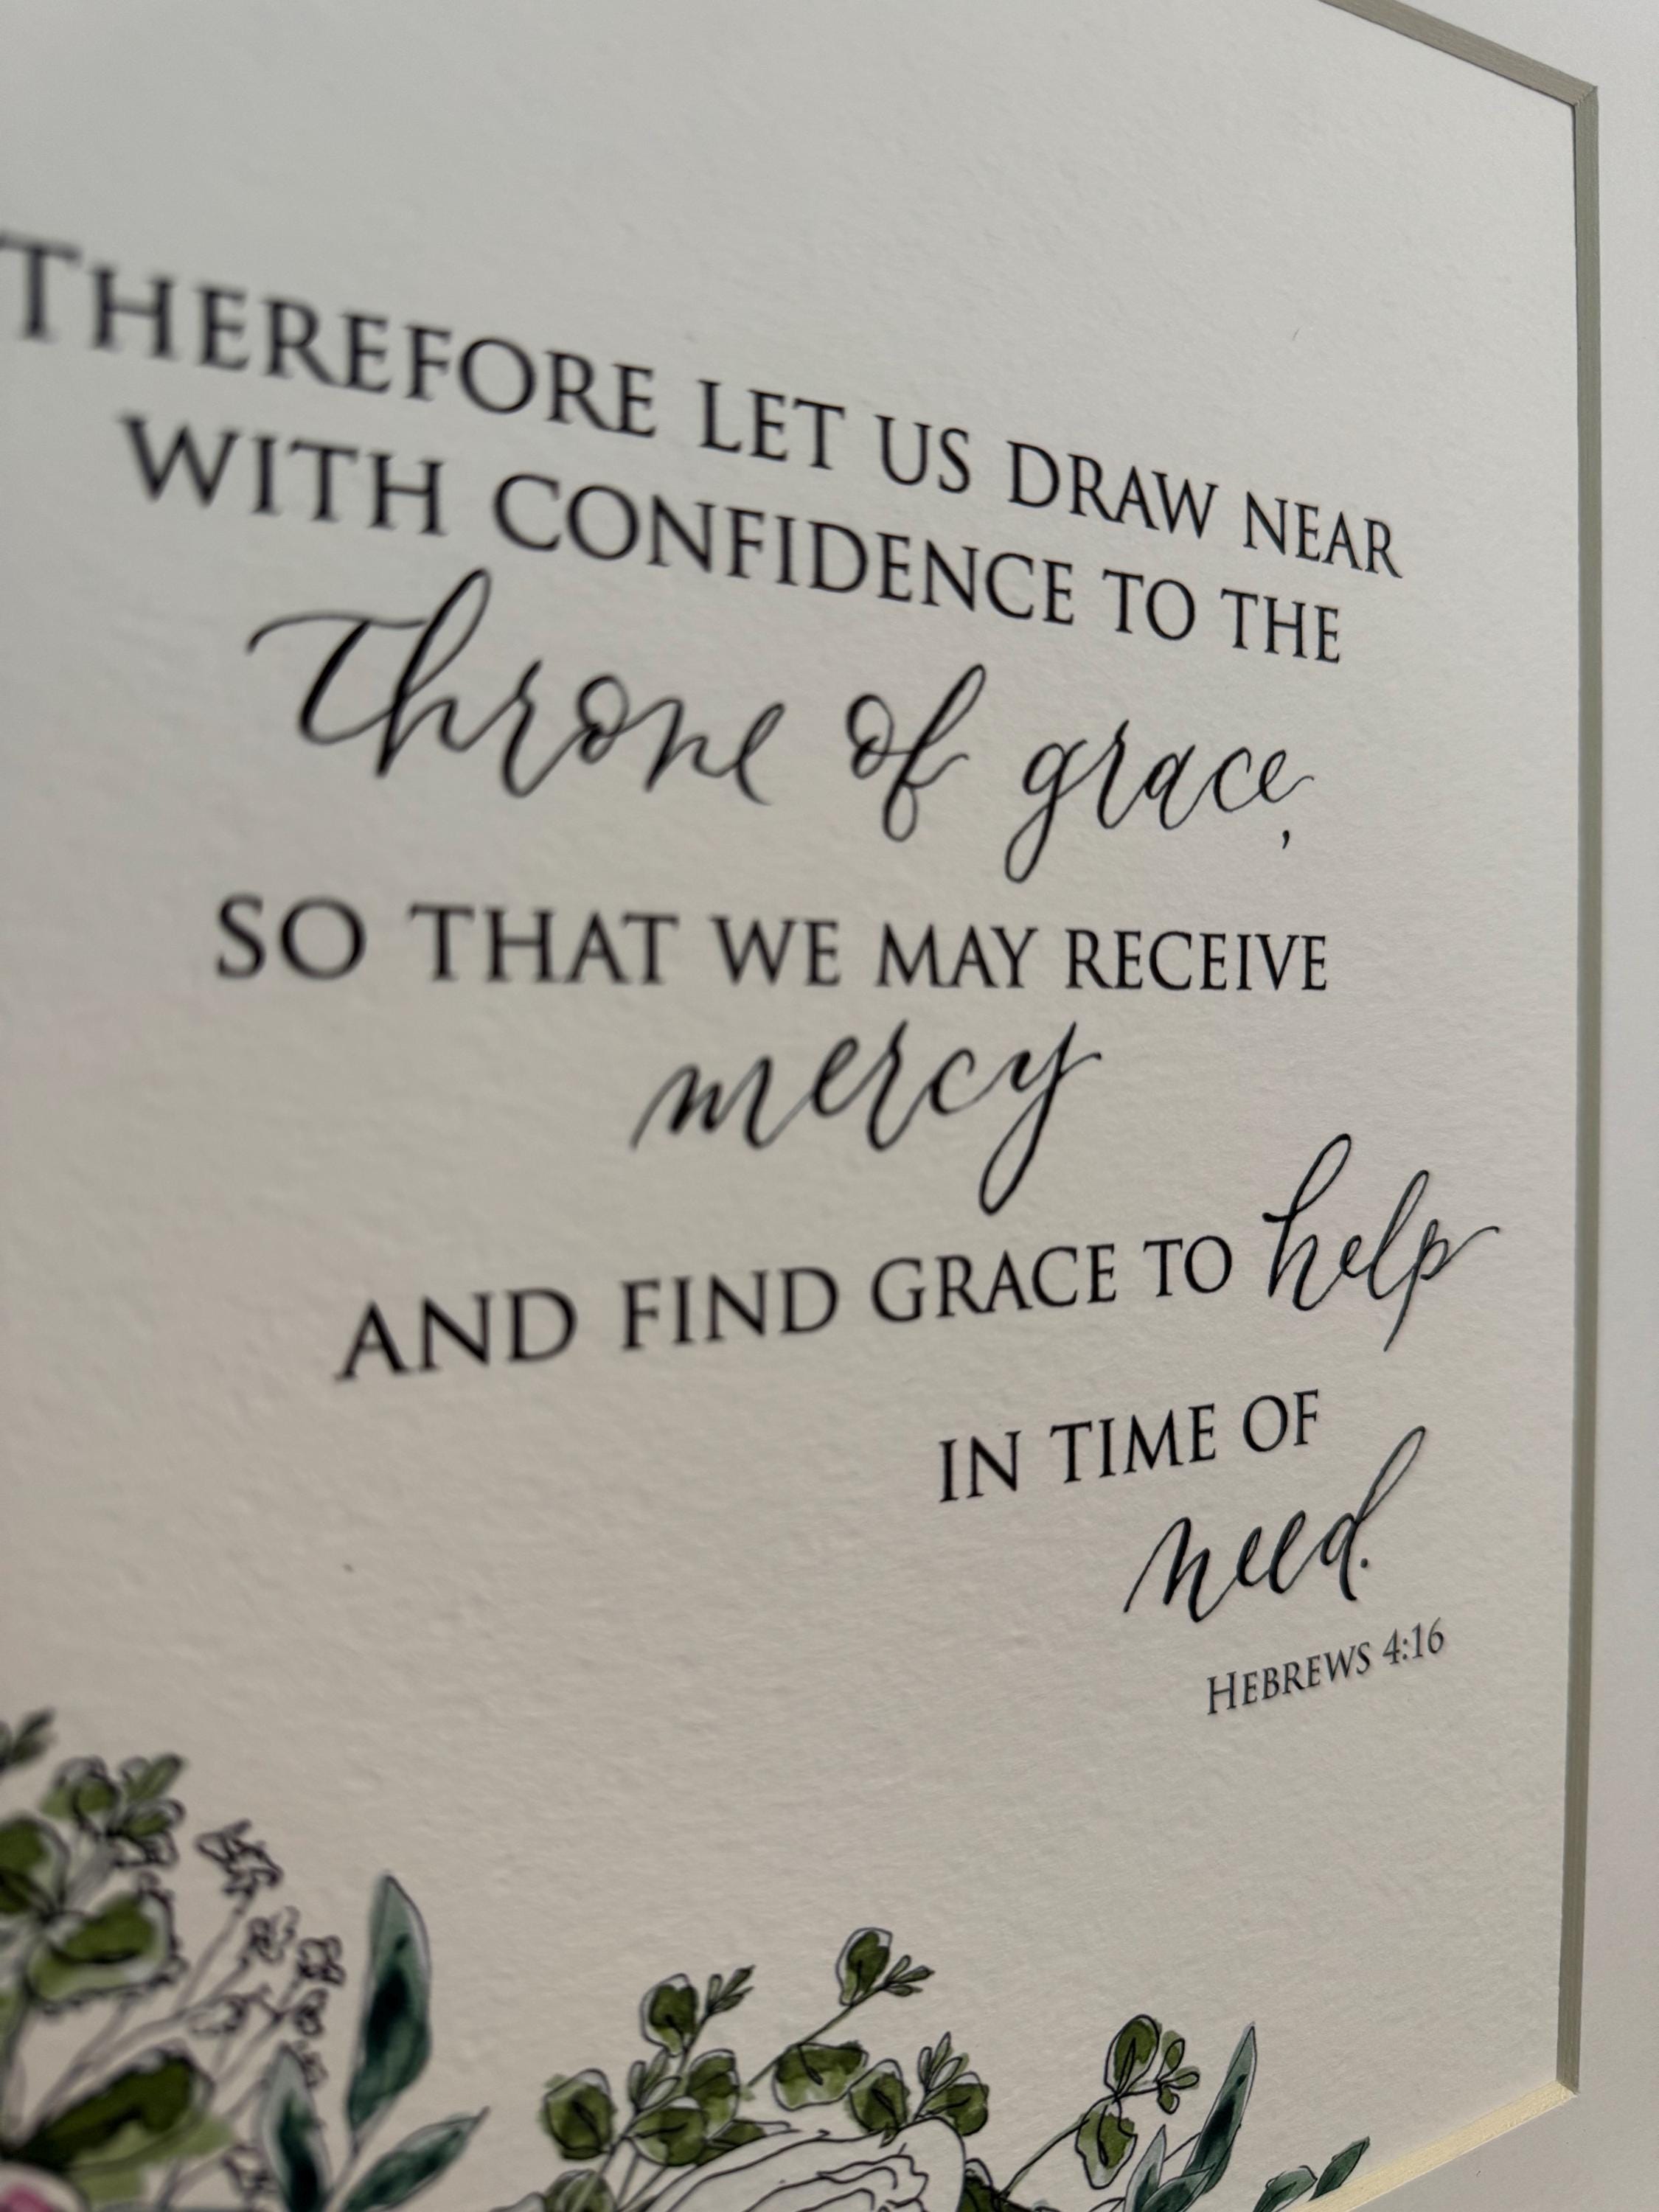 THEREFORE LET US DRAW NEAR
WITH CONFIDENCE TO THE
Throne of grace,
SO THAT WE MAY RECEIVE
mercy
AND FIND GRACE TO help
IN TIME OF
need.
HEBREWS 4:16